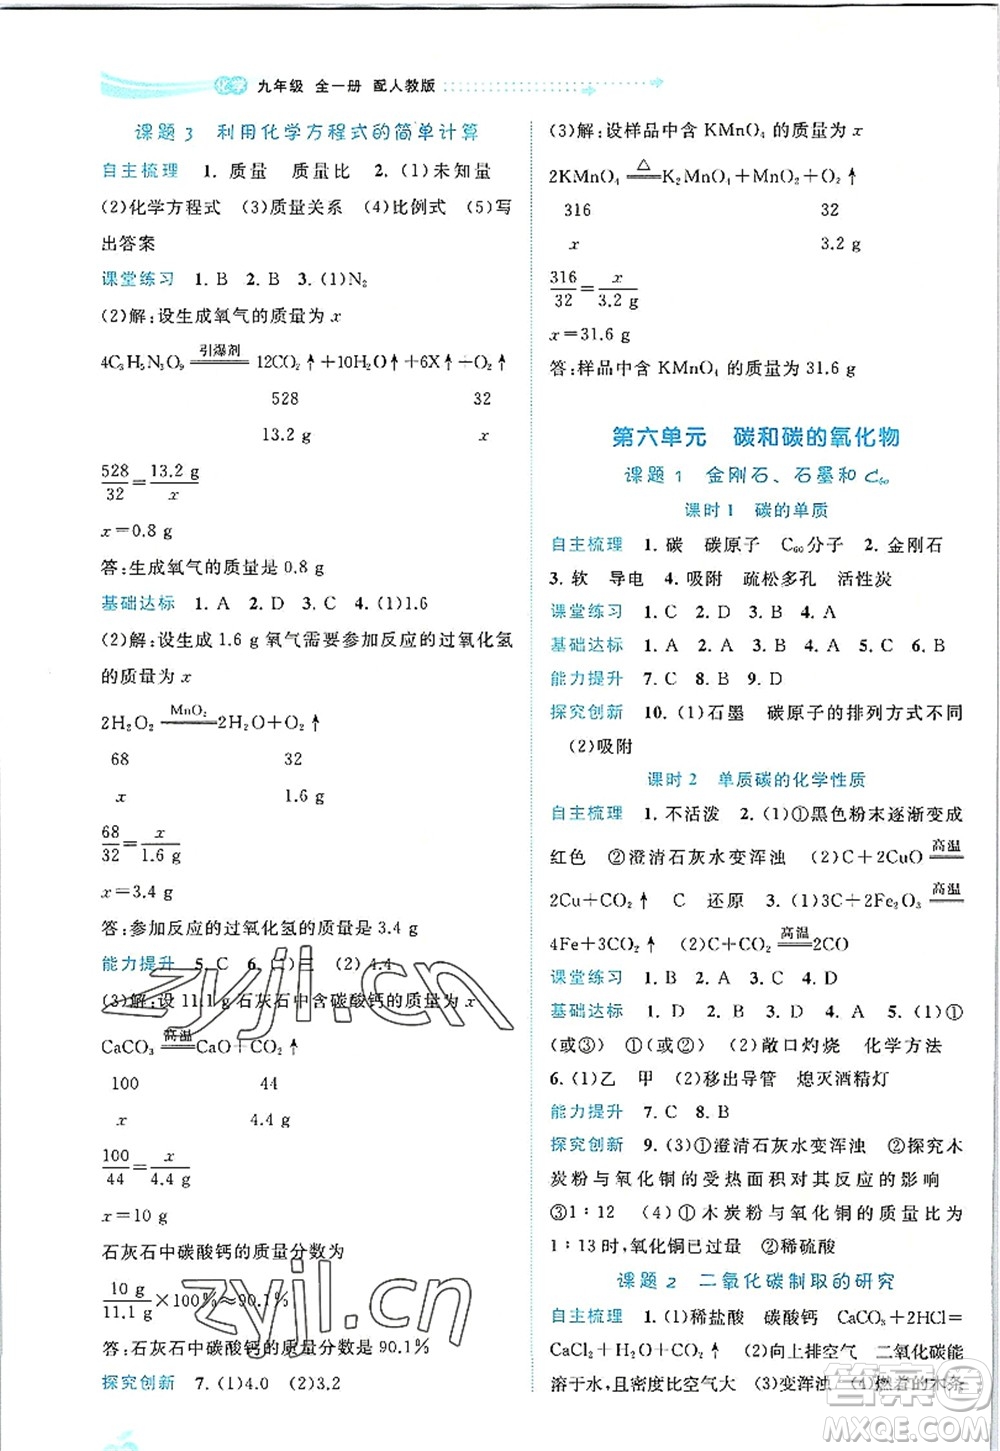 化学 九年级 全一册 配人教版
课题 3 利用化学方程式的简单计算
自主梳理 1. 质量 质量比 2. (1)未知量
(2)化学方程式 (3)质量关系 (4)比例式 (5)写
出答案
课堂练习 1. B 2. B 3. (1)N₂
(2)解:设生成氧气的质量为 x
4C₃H₅N₃O₉ 引爆剂 12CO₂↑+10H₂O↑+6X↑+O₂↑
528 32
13.2 g x
528/32=13.2 g/x
x=0.8 g
答:生成氧气的质量是0.8 g
基础达标 1. A 2. D 3. C 4. (1)1.6
(2)解:设生成 1.6 g氧气需要参加反应的过氧化氢
的质量为 x
2H₂O₂ MnO₂ 2H₂O+O₂↑
68 32
x 1.6 g
68/32=x/1.6 g
x=3.4 g
答:参加反应的过氧化氢的质量是 3.4 g
能力提升 5. C 6. (2)4.4
(3)解:设 11.1 g石灰石中含碳酸钙的质量为 x
CaCO₃ 高温 CaO+CO₂↑
100 44
x 4.4 g
100/44=x/4.4 g
x=10 g
石灰石中碳酸钙的质量分数为
10 g/11.1 g×100%≈90.1%
答:石灰石中碳酸钙的质量分数是 90.1%
探究创新 7. (1)4.0 (2)3.2
(3)解:设样品中含 KMnO₄ 的质量为 x
2KMnO₄ △ K₂MnO₄+MnO₂+O₂↑
316 32
x 3.2 g
316/32=x/3.2 g
x=31.6 g
答:样品中含 KMnO₄ 的质量为 31.6 g
第六单元 碳和碳的氧化物
课题 1 金刚石、石墨和 C₆₀
课时 1 碳的单质
自主梳理 1. 碳 碳原子 C₆₀分子 2. 金刚石
3. 软 导电 4. 吸附 疏松多孔 活性炭
课堂练习 1. C 2. D 3. B 4. A
基础达标 1. A 2. A 3. A 4. A 5. C 6. B
能力提升 7. C 8. B 9. D
探究创新 10. (1)石墨 碳原子的排列方式不同
(2)吸附
课时 2 单质碳的化学性质
自主梳理 1. 不活泼 2. (1)①黑色粉末逐渐变成
红色 ②澄清石灰水变浑浊 (2)C+2CuO 高温
2Cu+CO₂↑ C 还原 3. (1)3C+2Fe₂O₃ 高温
4Fe+3CO₂↑ (2)C+CO₂ 高温 2CO
课堂练习 1. B 2. A 3. C 4. D
基础达标 1. D 2. A 3. D 4. A 5. (1)①
(或③) ①(或③) (2)敞口灼烧 化学方法
6. (1)乙 甲 (2)移出导管 熄灭酒精灯
能力提升 7. C 8. B
探究创新 9. (3)①澄清石灰水变浑浊 ②探究木
炭粉与氧化铜的受热面积对其反应的影响
③1∶12 (4)①木炭粉与氧化铜的质量比为
1∶13时,氧化铜已过量 ②稀硫酸
课题 2 二氧化碳制取的研究
自主梳理 1. (1)稀盐酸 碳酸钙 CaCO₃+2HCl=
CaCl₂+H₂O+CO₂↑ (2)向上排空气 二氧化碳能
溶于水,且密度比空气大 (3)变浑浊 (4)燃着的木条
zyjl.cn
zyjl.cn
答案圈
MXQE.COM